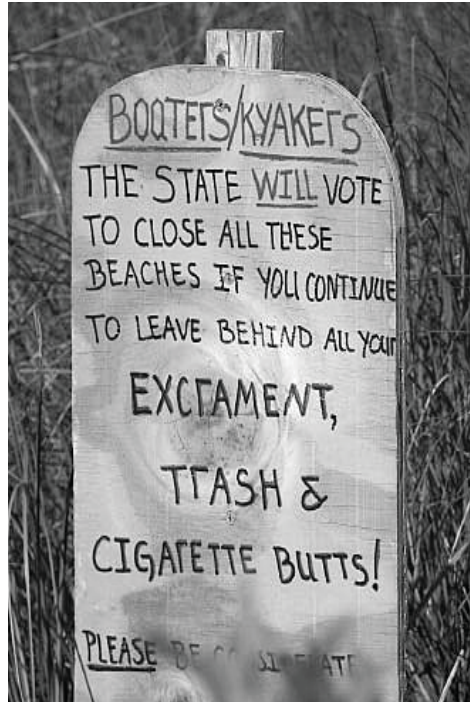 BOATERS/KYAKERS
THE STATE WILL VOTE
TO CLOSE ALL THESE
BEACHES IF YOU CONTINUE
TO LEAVE BEHIND ALL YOUR
EXCRAMENT,
TRASH &
CIGARETTE BUTTS!
PLEASE BE CONSIDERATE